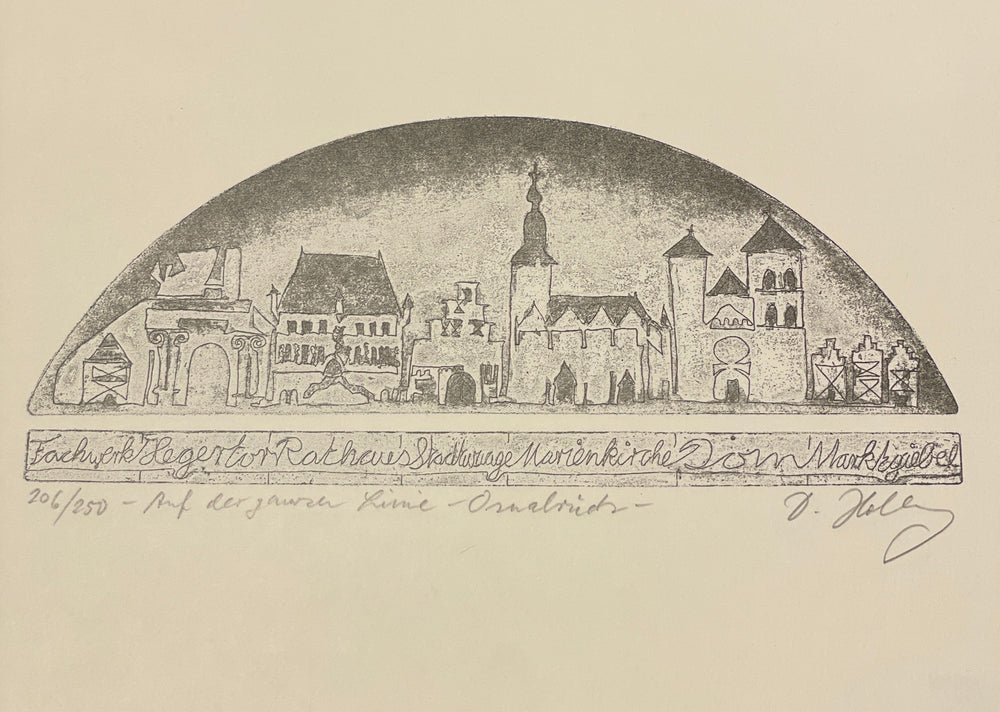 Fachwerk Hegertor Rathaus Stadtwaage Marienkirche Dom Marktgiebel
206/250 – Auf der ganzen Linie – Osnabrück –
D.